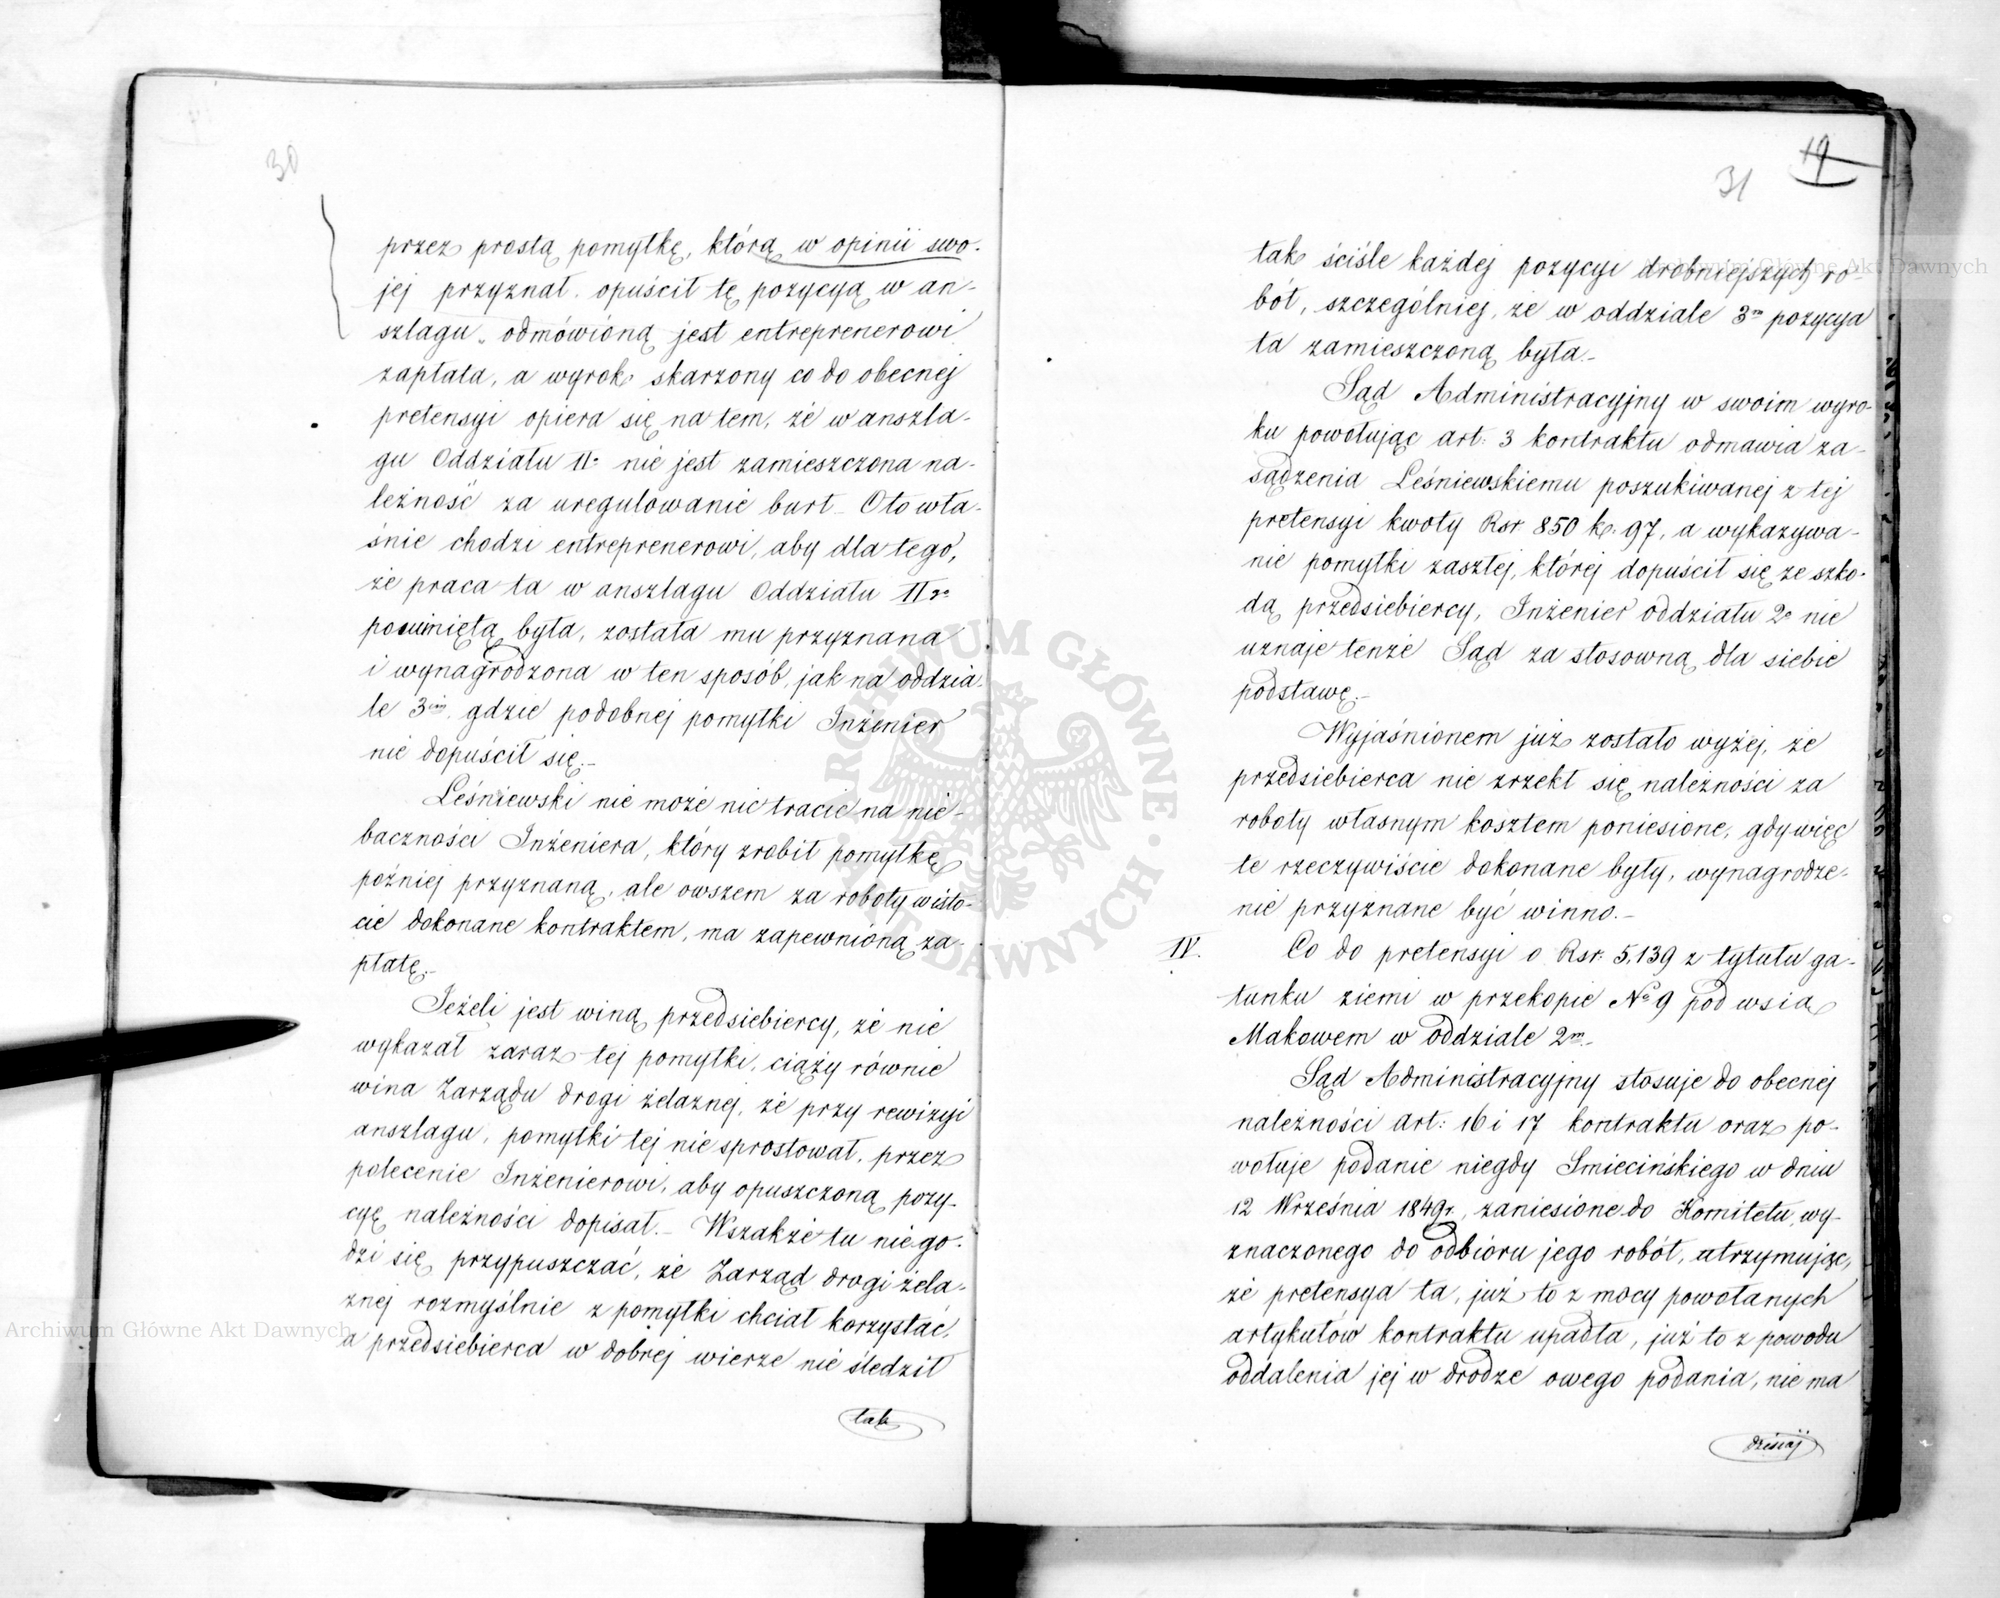 30
przez prostą pomyłkę, którą w opinii swo-
jej przyznał, opuścił tę pozycyą w an-
szlagu, odmówioną jest entreprenerowi
zapłata, a wyrok skarżony co do obecnej
pretensyi opiera się na tem, że w anszla-
gu Oddziału IIo nie jest zamieszczona na-
leżność za uregulowanie burt. Oto wła-
śnie chodzi entreprenerowi, aby dla tego,
że praca ta w anszlagu Oddziału IIgo
pominiętą była, została mu przyznana
i wynagrodzona w ten sposób, jak na oddzia-
le 3im, gdzie podobnej pomyłki Inżenier
nie dopuścił się.-
Leśniewski nie może nic tracić na nie-
baczności Inżeniera, który zrobił pomyłkę
później przyznaną, ale owszem za roboty w isto-
cie dokonane kontraktem, ma zapewnioną za-
płatę.-
Jeżeli jest winą przedsiebiercy, że nie
wykazał zaraz tej pomyłki, ciąży równie
wina Zarządu drogi żelaznej, że przy rewizyi
anszlagu, pomyłki tej nie sprostował, przez
polecenie Inżenierowi, aby opuszczoną pozy-
cyę należności dopisał.- Wszakże tu nie go-
dzi się przypuszczać, że Zarząd drogi żela-
znej rozmyślnie z pomyłki chciał korzystać,
a przedsiebierca w dobrej wierze nie śledził
tak
19
31
tak ściśle każdej pozycyi drobniejszych ro-
bót, szczególniej, że w oddziale 3m pozycya
ta zamieszczoną była.-
Sąd Administracyjny w swoim wyro-
ku powołując art: 3 kontraktu odmawia za-
sądzenia Leśniewskiemu poszukiwanej z tej
pretensyi kwoty Rsr 850 k. 97, a wykazywa-
nie pomyłki zaszłej, której dopuścił się ze szko-
dą przedsiebiercy, Inżenier oddziału 2o nie
uznaje tenże Sąd za stosowną dla siebie
podstawę.-
Wyjaśnionem już zostało wyżej, że
przedsiebierca nie zrzekł się należności za
roboty własnym kosztem poniesione, gdy więc
te rzeczywiście dokonane były, wynagrodze-
nie przyznane być winno.-
IV. Co do pretensyi o Rsr. 5,139 z tytułu ga-
tunku ziemi w przekopie No 9 pod wsią
Makowem w oddziale 2m.-
Sąd Administracyjny stosuje do obecnej
należności Art: 16 i 17 kontraktu oraz po-
wołuje podanie niegdy Smiecińskiego w dniu
12 Września 1849r., zaniesione do Komitetu wy-
znaczonego do odbioru jego robót, utrzymując,
że pretensya ta, już to z mocy powołanych
artykułów kontraktu upadła, już to z powodu
oddalenia jej w drodze owego podania, nie ma
dzisiaj
ARCHIWUM GŁÓWNE AKT DAWNYCH
Archiwum Główne Akt Dawnych
Archiwum Główne Akt Dawnych